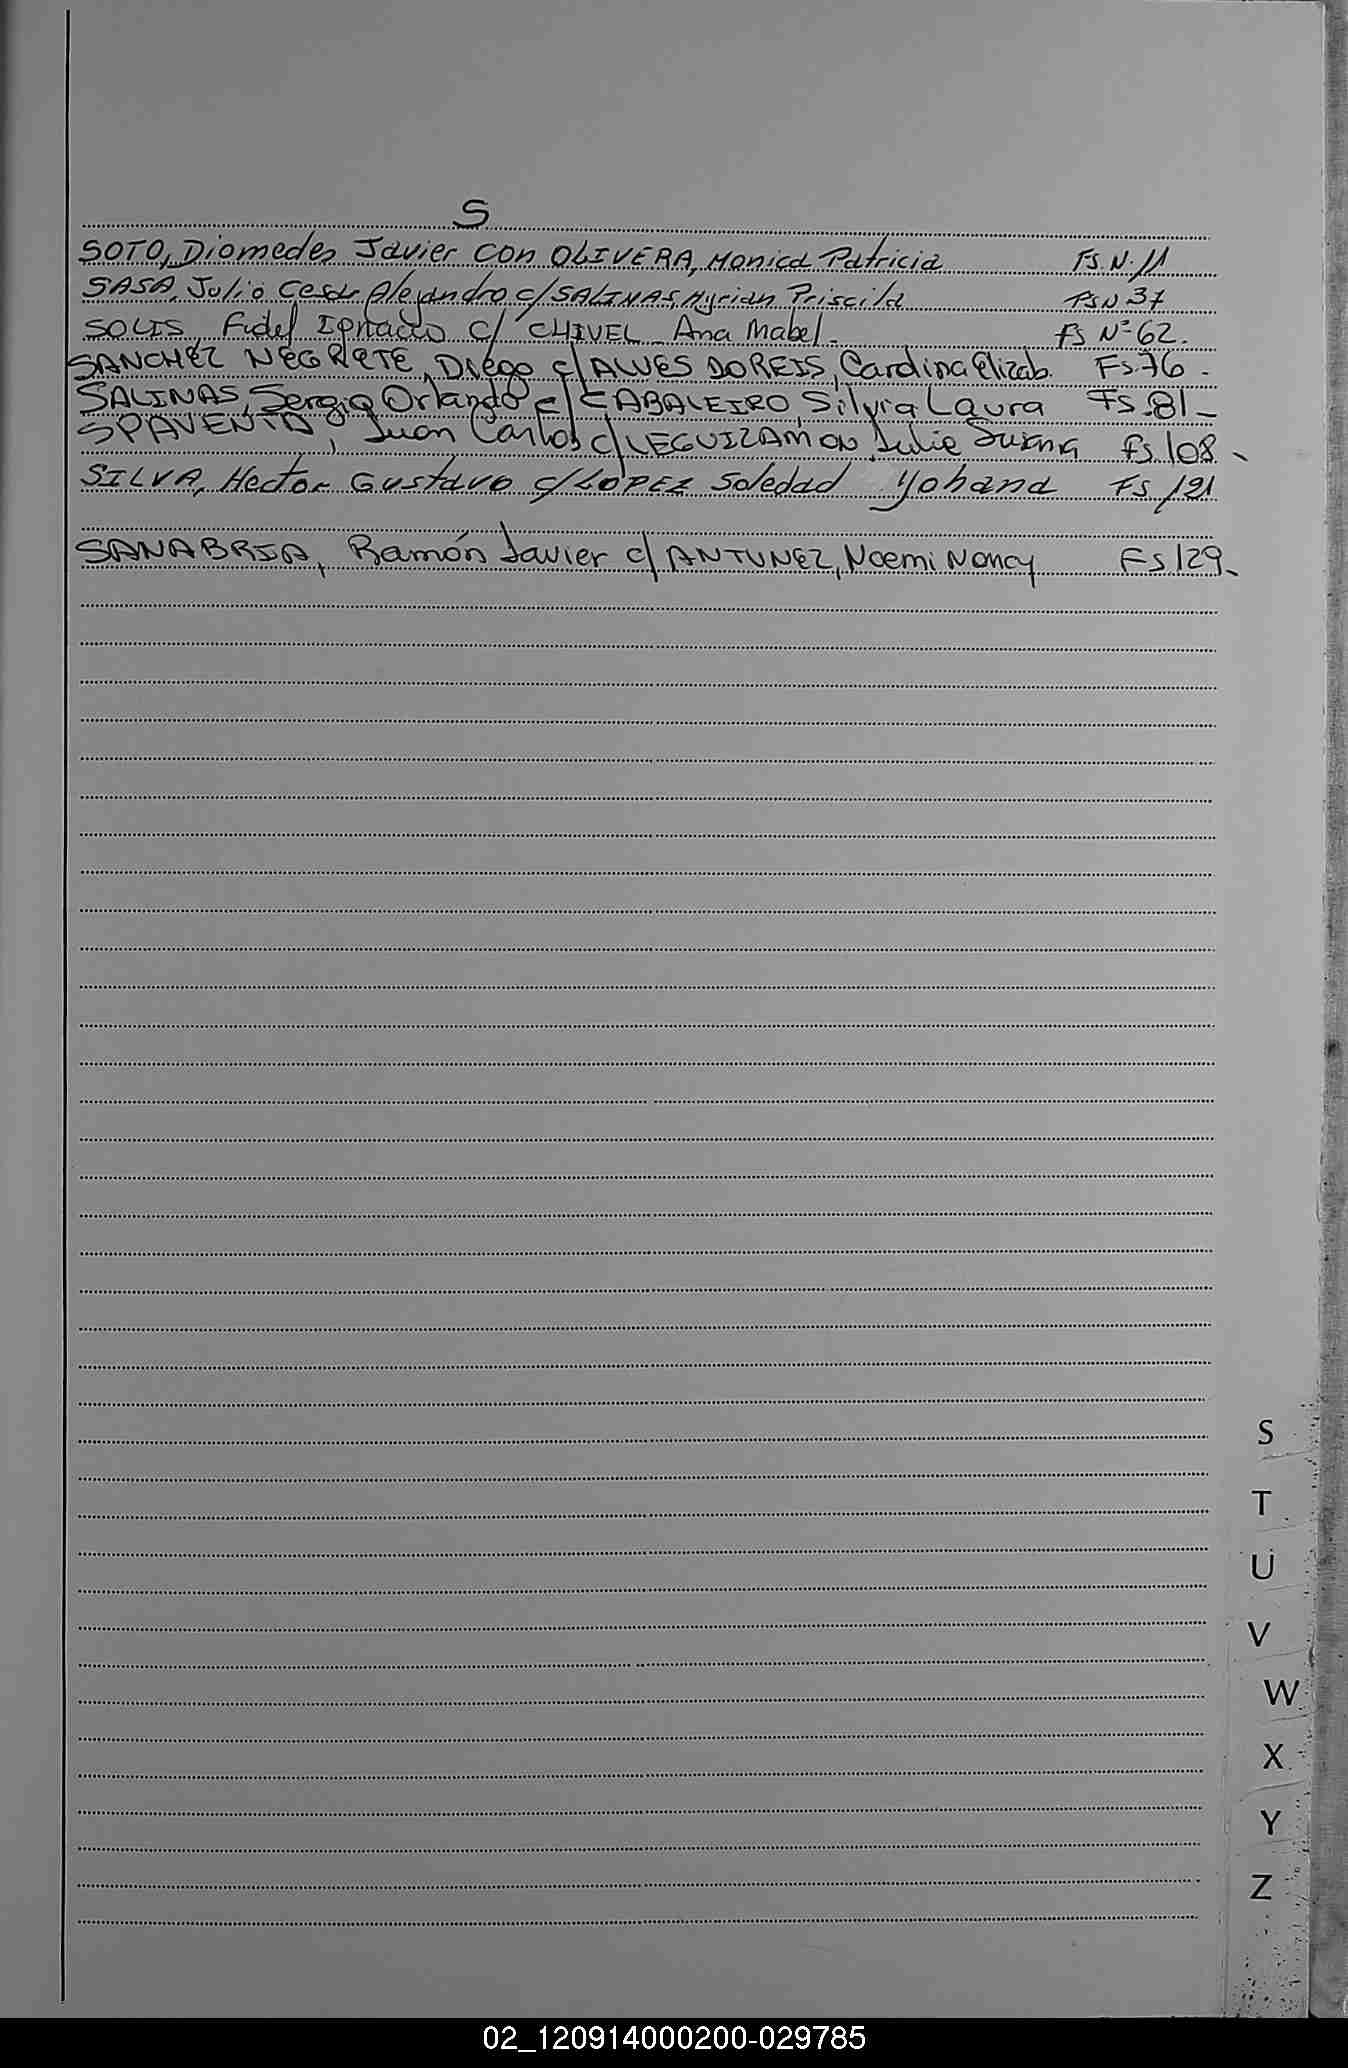 S
SOTO, Diomedes Javier con OLIVERA, Monica Patricia Fs. N. 11
SASA, Julio Cesar Alejandro c/ SALINAS, Myrian Priscila Fs N 37
SOLIS, Fidel Ignacio c/ CHIVEL Ana Mabel. fs Nº 62.
SANCHEZ NEGRETE, Diego c/ ALVES DOREIS, Carolina Elizab. Fs 76.
SALINAS, Sergio Orlando c/ CABALEIRO, Silvia Laura Fs. 81_
SPAVENTA, Juan Carlos c/ LEGUIZAMON Julie Susana fs. 108.
SILVA, Hector Gustavo c/ LOPEZ Soledad Yohana Fs 121
SANABRIA, Ramón Javier c/ ANTUNEZ, Noemi Nancy Fs. 129.
S
T
U
V
W
X
Y
Z
02_120914000200-029785